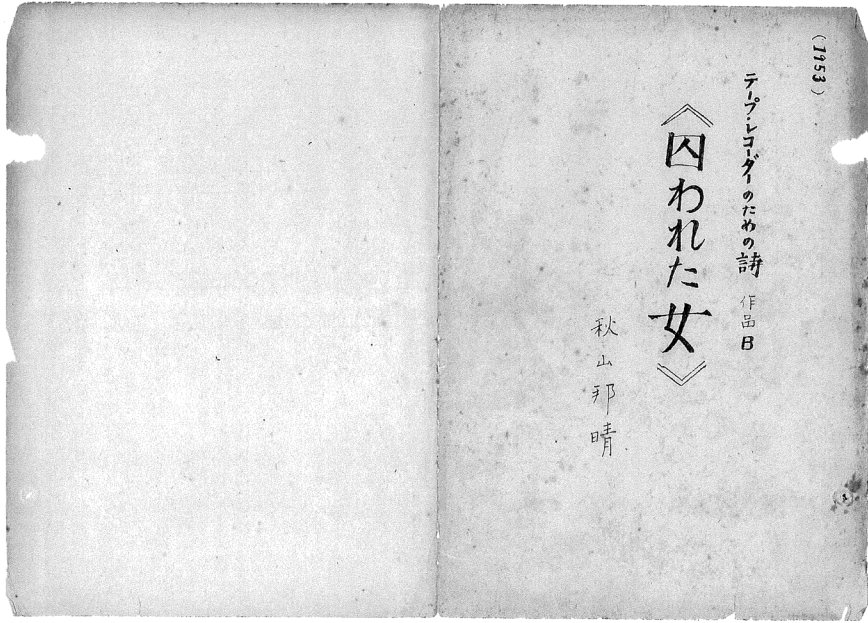 (1953)
テープ・レコーダーのための詩 作品B
《囚われた女》
秋山邦晴